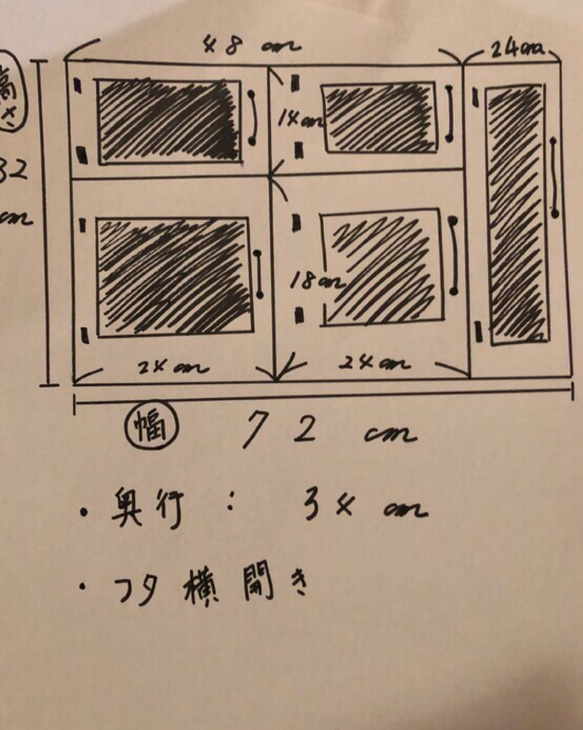 48 cm
24cm
高さ
32
cm
14cm
18cm
24cm
24cm
幅 72 cm
・奥行 : 34 cm
・フタ横開き